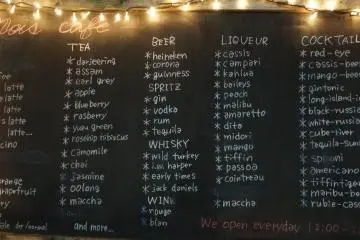 cafe
latte
latte
latte
latte...
cino
orange
grapefruit
by/normal
TEA
* darjeering
* assam
* earl grey
* apple
* blueberry
* rasberry
* yuzu green
* rosehip hibiscus
* camomile
* chai
* jasmine
* oolong
* maccha
and more...
BEER
* heineken
* corona
* guinness
SPRITZ
* gin
* vodka
* rum
* tequila
WHISKY
* wild turkey
* i.w. harper
* early times
* jack daniels
WINE
* rouge
* blan
LIQUEUR
* cassis
* campari
* kahlua
* baileys
* peach
* malibu
* amaretto
* dita
* midori
* mango
* tiffin
* passoa
* cointreau
* maccha
COCKTAIL
* red-eye
* cassis-beer
* mango-beer
* gintonic
* long-island-i
* black-russi
* white-russia
* cube-river
* tequila-suns
* americano
* tiffintiger
* manibu-
* rubie-cass
We open everyday 12:00-2